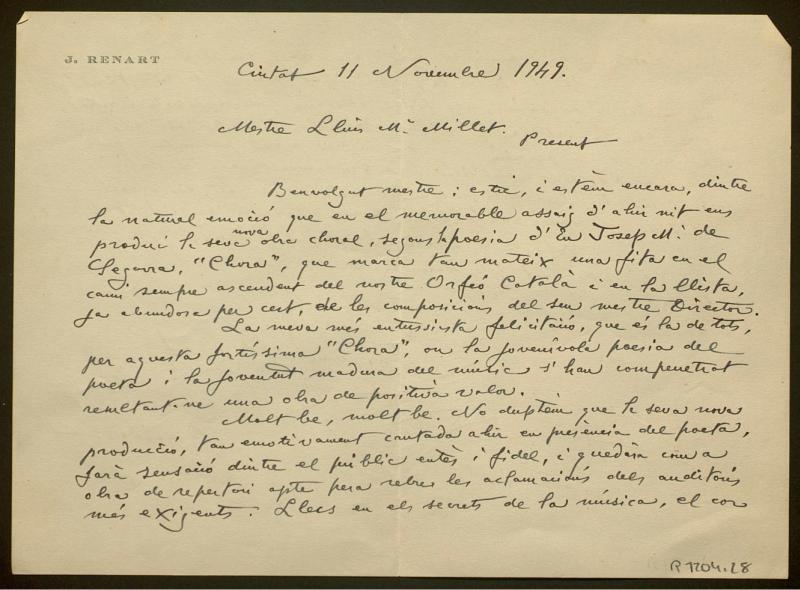 J. RENART
Ciutat 11 Novembre 1949.
Mestre Lluis Mª Millet.
Present
Benvolgut mestre; estic, i estèm encara, dintre
la natural emoció que en el memorable assaig d'ahir nit ens
produí la seva nova obra choral, segons la poesia d'En Josep Mª de
Segarra, "Chora", que marca tan mateix una fita en el
camí sempre ascendent del nostre Orfeó Català i en la llista,
ja abundosa per cert, de les composicions del seu mestre Director.
La meva més entussiasta felicitació, que és la de tots,
per aquesta fortíssima "Chora", on la jovenívola poesia del
poeta i la joventut madura del músic s'han compenetrat
resultant-ne una obra de positiva valor.
Molt be, molt be. No duptèm que la seva nova
producció, tan emotivament cantada ahir en presència del poeta,
farà sensació dintre el públic entès i fidel, i quedarà com a
obra de repertori apte pera rebre les aclamacions dels auditoris
més exigents. Llecs en els secrets de la música, el cor
R 1204.28